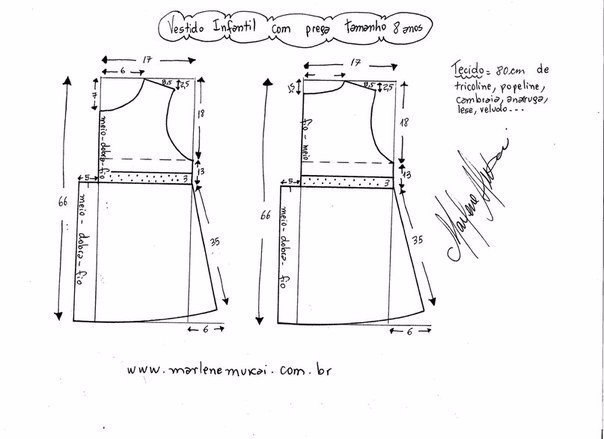 Vestido Infantil com prega tamanho 8 anos
Tecido = 80cm de
tricoline, popeline,
cambraia, anarruga,
lese, veludo...
17
6
2,5
7
18
meio-dobra-fio
13
5
3
66
meio-dobra-fio
35
6
17
2,5
18
fio-meio
13
5
3
66
meio-dobra-fio
35
6
Marlene Mukai
www.marlenemukai.com.br